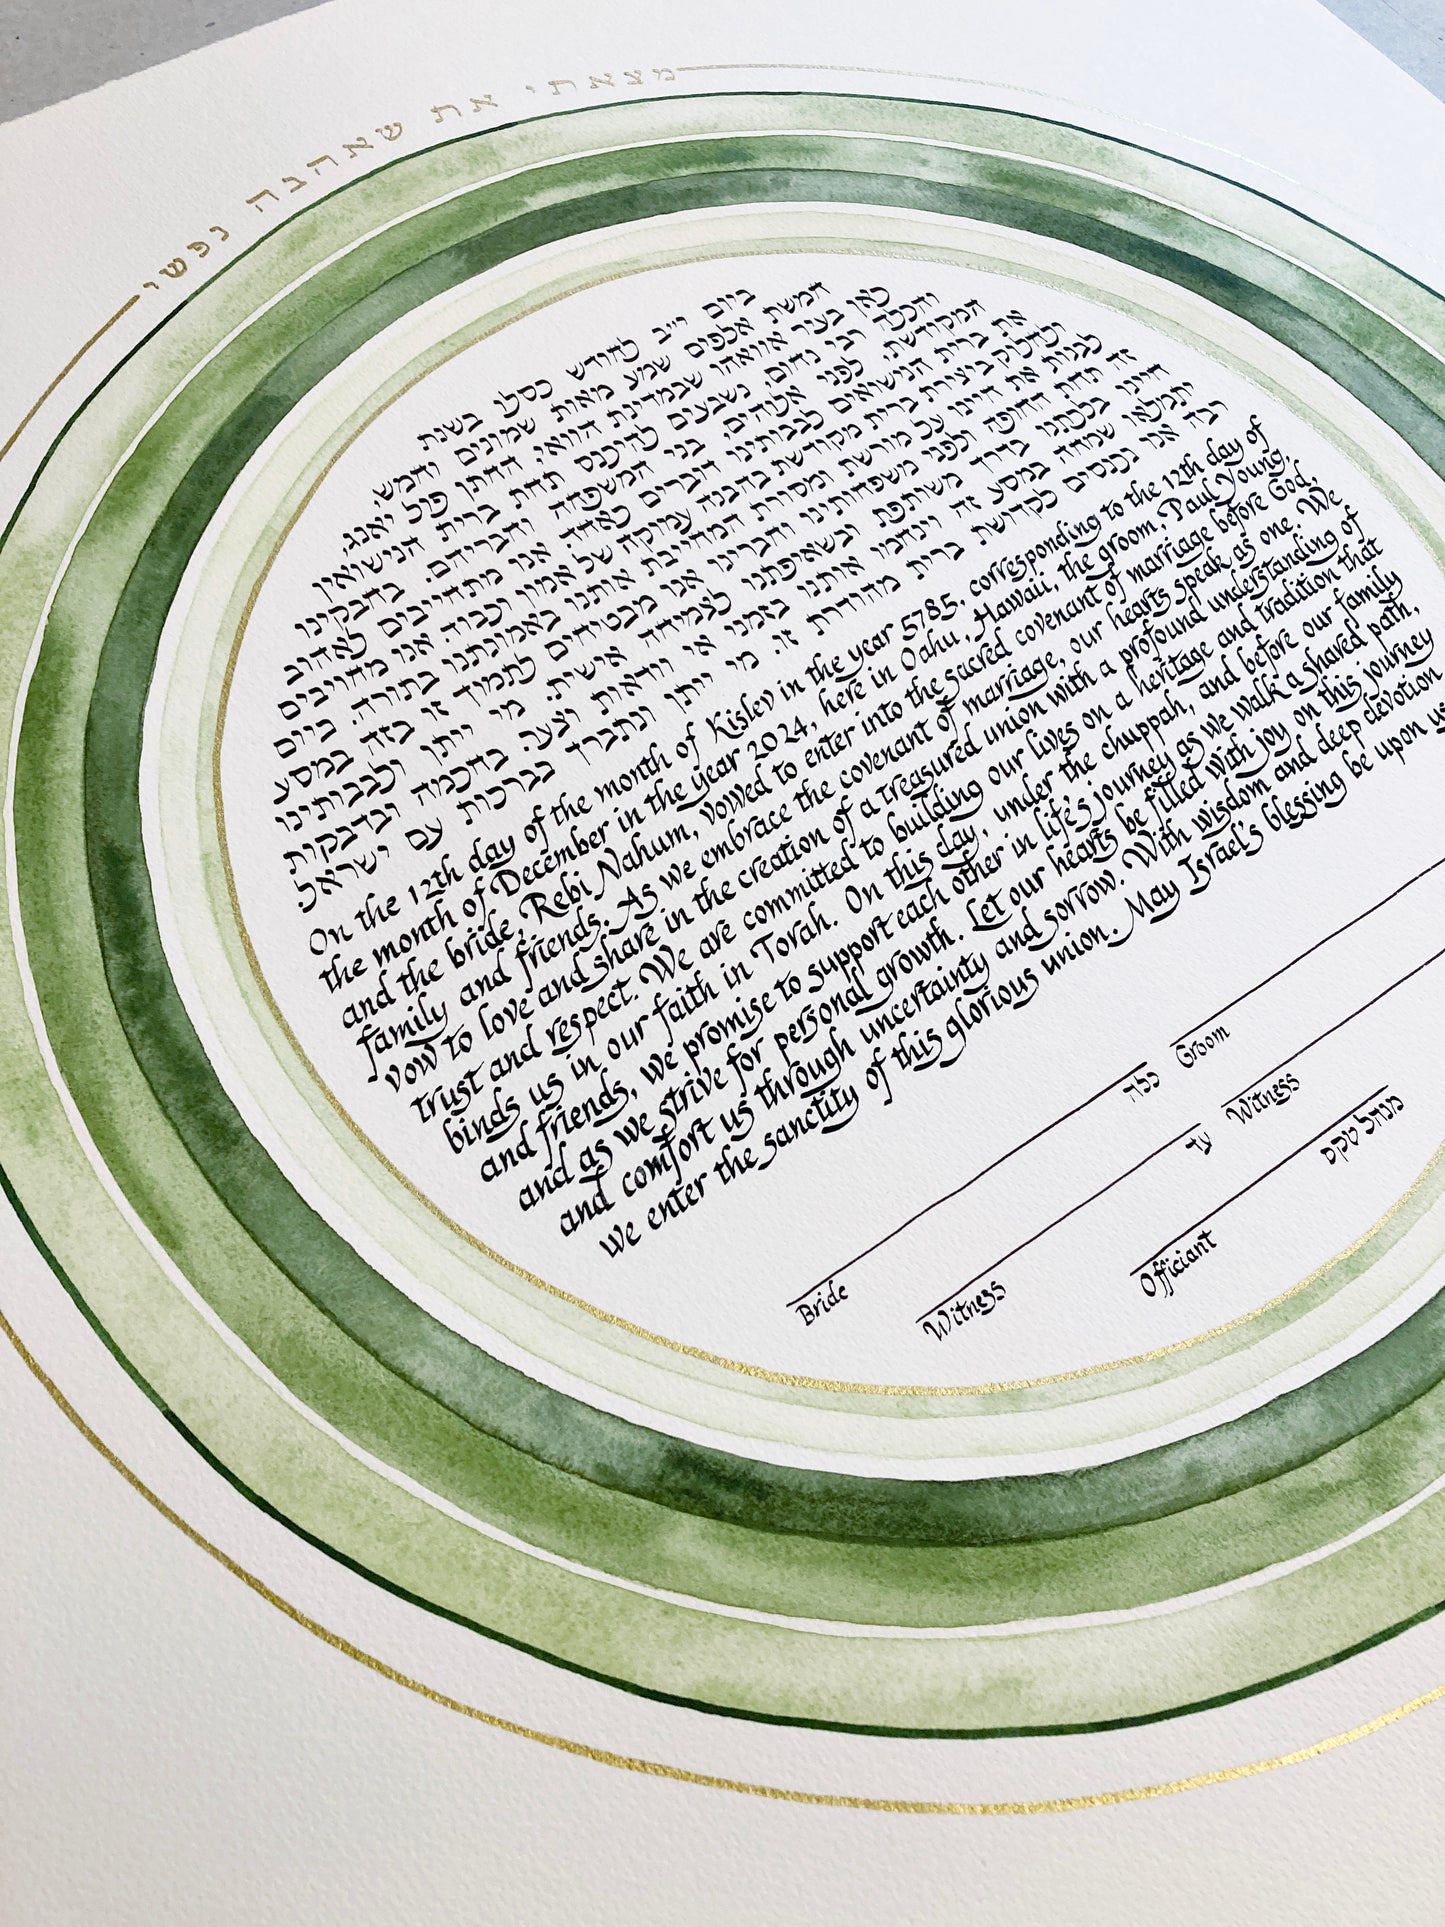 מצאתי את שאהבה נפשי
ביום י״ב לחודש כסלו בשנת
חמשת אלפים שבע מאות שמונים וחמש,
כאן בעיר אוואהו שבמדינת הוואי, החתן פול יאנג,
והכלה רבי נחום, נשבעים להיכנס תחת ברית הנישואין
המקודשת, לפני אלוהים, בני המשפחה וחבריהם. בחבקינו
את ברית הנישואים לבבותינו דוברים כאחד. אנו מתחייבים לאהוב
ולחלוק ביצירת ברית מקודשת בהבנה עמוקה של אמון וכבוד. אנו מחויבים
לבנות את חיינו על מורשת ומסורת המחייבת אותנו באמונתנו בתורה. ביום
זה תחת החופה ולפני משפחותינו וחברינו אנו מבטיחים לתמוך זו בזה במסע
חיינו בלכתנו בדרך משותפת ובשאיפתנו לצמיחה אישית. מי ייתן ולבבותינו
יתמלאו שמחה במסע זה וינחמו אותנו בזמני אי וודאות וצער. בחכמה ובדבקות
רבה אנו נכנסים לקדושת ברית מהודרת זו. מי ייתן ונתברך בברכות עם ישראל.
On the 12th day of the month of Kislev in the year 5785, corresponding to the 12th day of
the month of December in the year 2024, here in Oahu, Hawaii, the groom, Paul Young,
and the bride, Rebi Nahum, vowed to enter into the sacred covenant of marriage before God,
family and friends. As we embrace the covenant of marriage, our hearts speak as one. We
vow to love and share in the creation of a treasured union with a profound understanding of
trust and respect. We are committed to building our lives on a heritage and tradition that
binds us in our faith in Torah. On this day, under the chuppah, and before our family
and friends, we promise to support each other in life's journey as we walk a shared path,
and as we strive for personal growth. Let our hearts be filled with joy on this journey
and comfort us through uncertainty and sorrow. With wisdom and deep devotion
we enter the sanctity of this glorious union. May Israel's blessing be upon us
Bride כלה Groom
Witness עד Witness
Officiant מנהל טקס